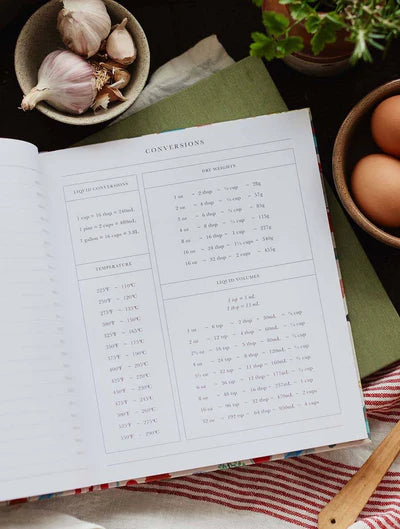 CONVERSIONS
LIQUID CONVERSIONS
1 cup = 16 tbsp = 240mL
1 pint = 2 cups = 480mL
1 gallon = 16 cups = 3.8L
TEMPERATURE
225°F - 110°C
250°F - 120°C
275°F - 135°C
300°F - 150°C
325°F - 165°C
350°F - 175°C
375°F - 190°C
400°F - 205°C
425°F
450°F - 230°C
475°F - 245°C
500°F - 260°C
525°F - 275°C
550°F - 290°C
DRY WEIGHTS
1 oz - 2 tbsp - ⅛ cup - 28g
2 oz - 4 tbsp - ¼ cup - 57g
3 oz - 6 tbsp - ⅓ cup - 85g
4 oz - 8 tbsp - ½ cup - 115g
8 oz - 16 tbsp - 1 cup - 227g
16 oz - 32 tbsp - 2 cups - 455g
LIQUID VOLUMES
1 tsp = 5 mL
1 tbsp = 15 mL
1 oz - 6 tsp - 2 tbsp - 30mL - ⅛ cup
2 oz - 12 tsp - 4 tbsp - 60mL - ¼ cup
4 oz - 24 tsp - 8 tbsp - 120mL - ½ cup
8 oz - 48 tsp - 16 tbsp - 1 cup
16 oz - 96 tsp - 32 tbsp - 470mL - 2 cups
32 oz - 192 tsp - 64 tbsp - 950mL - 4 cups